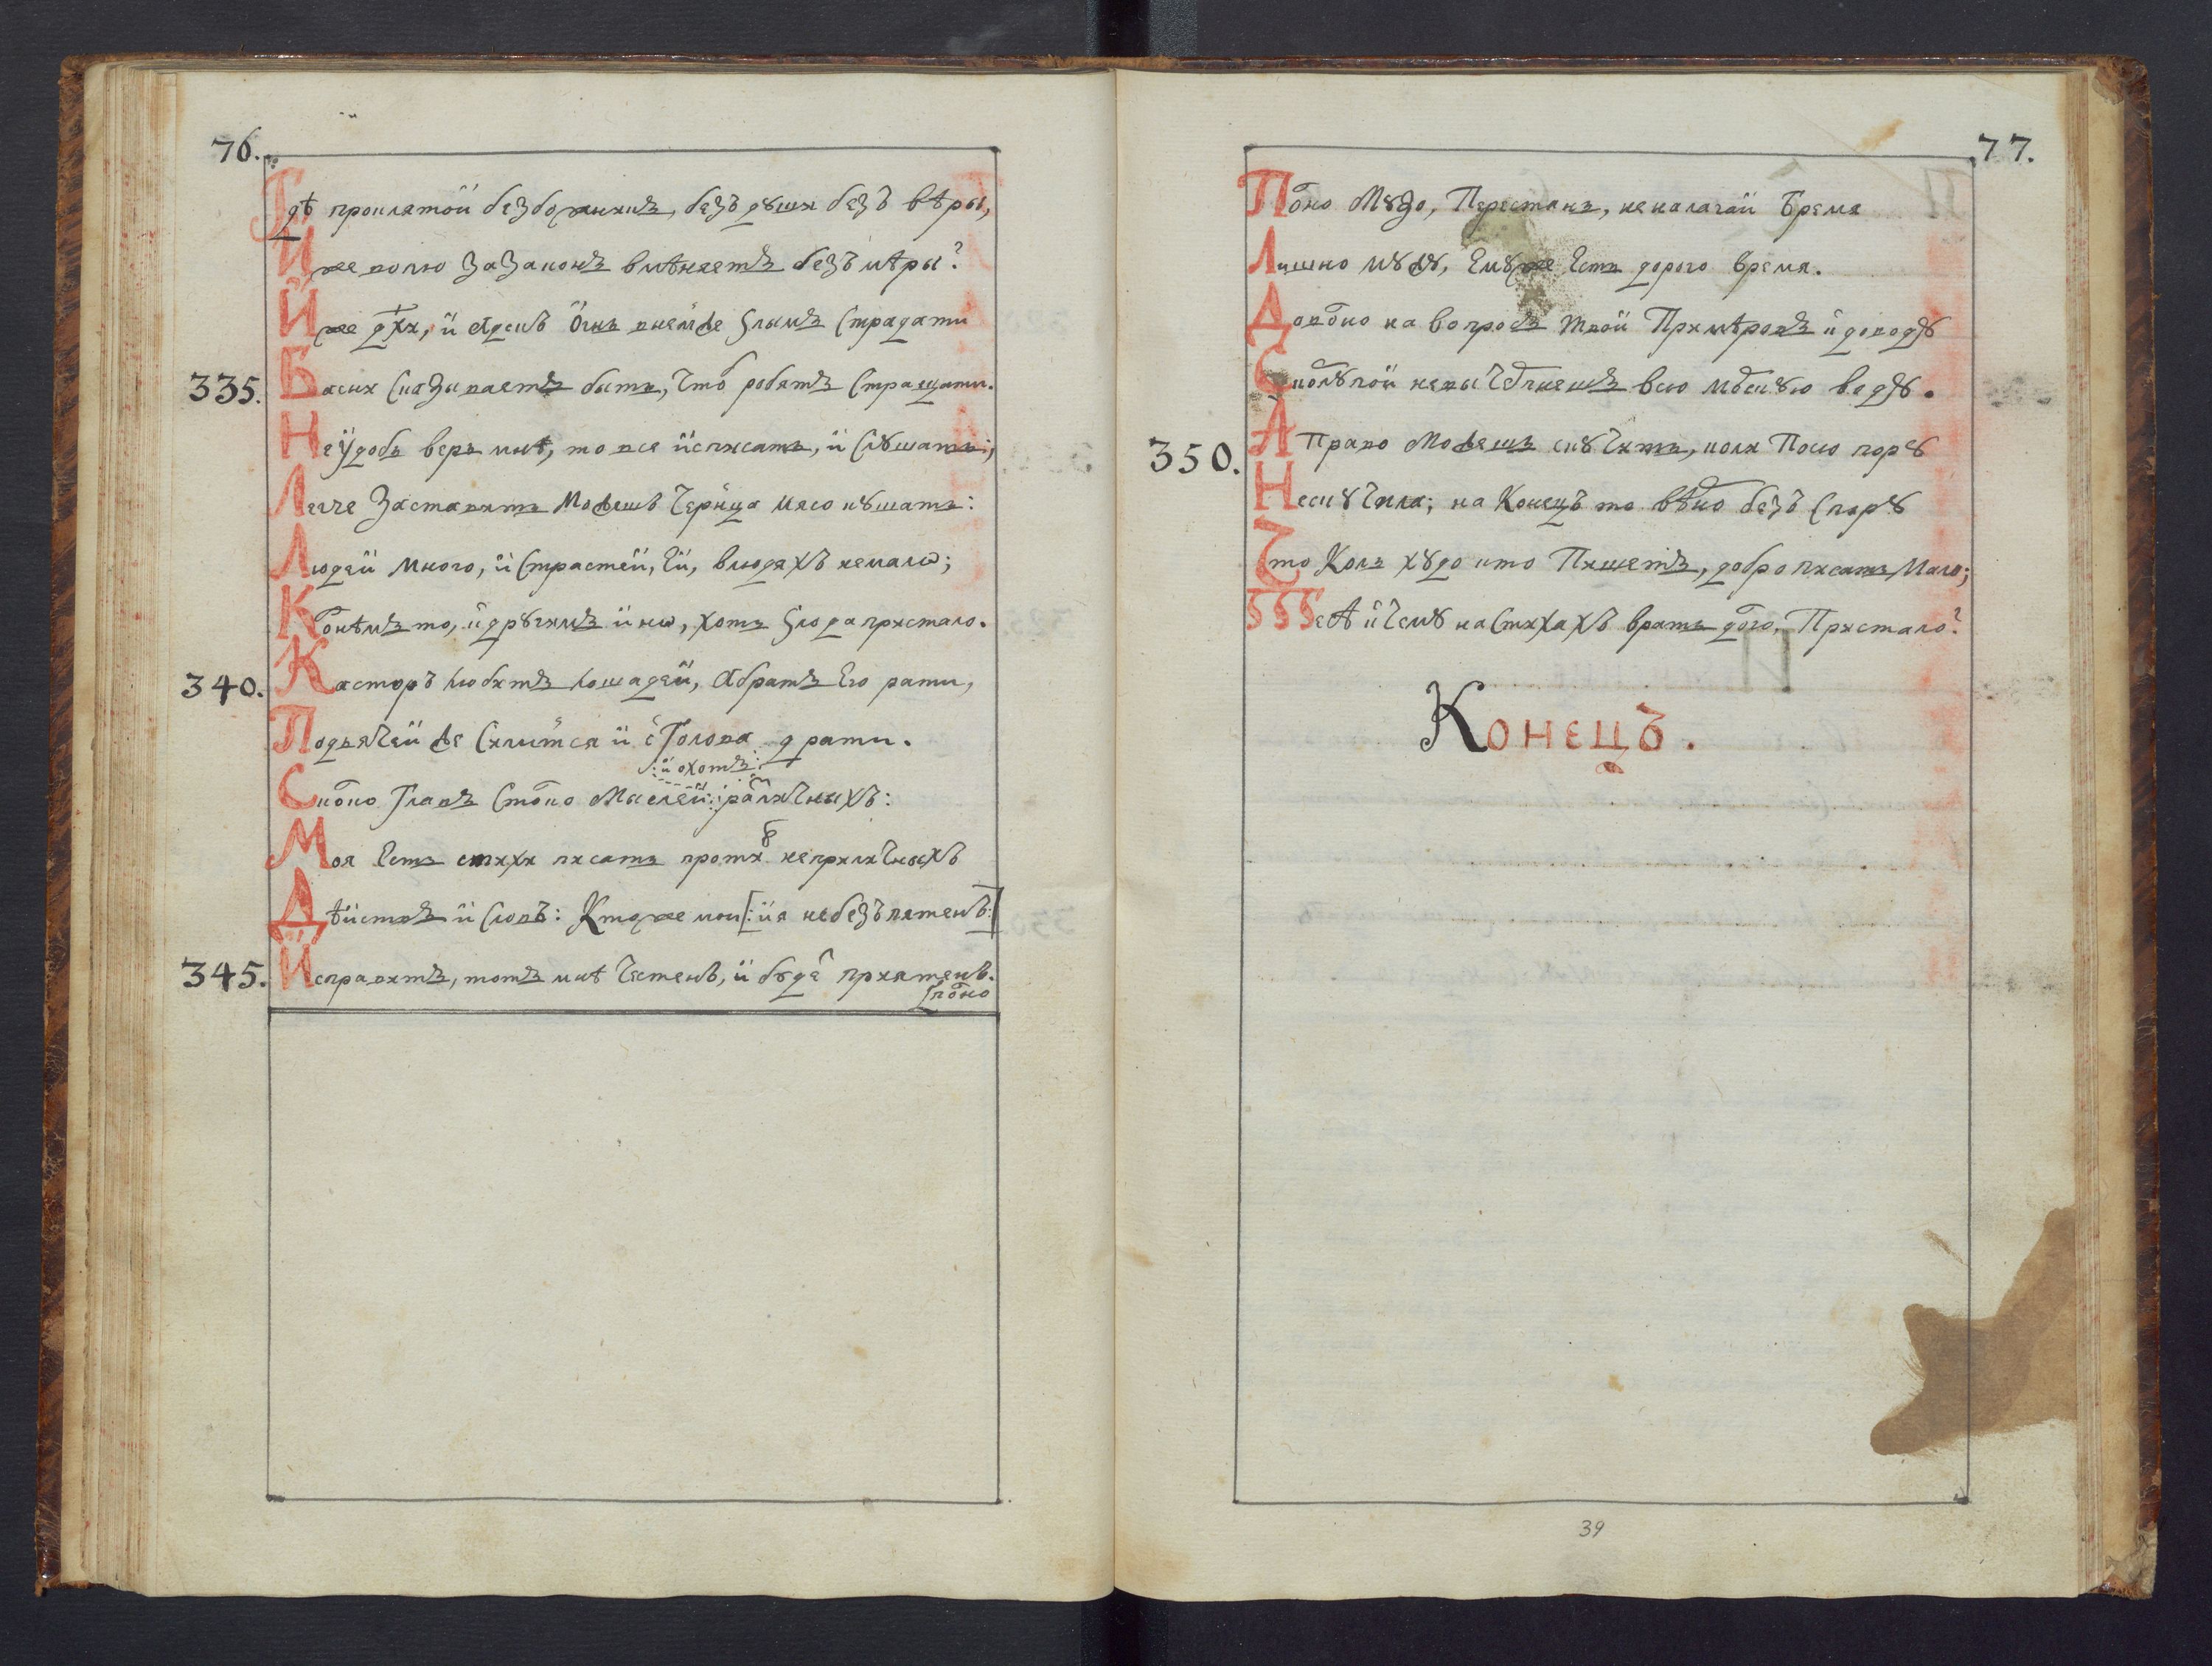 76.
Гдѣ проклятой безбожникъ, безъ дꙋши безъ вѣры,
Иже волю За Законъ вмѣняетъ безъ мѣры?
Иже дх҃и, и адскъ Огнь въ нем же ѕлымъ Страдати
335. Басни Сказываетъ быть, что робятъ Стращати.
Неꙋдобь верь мнѣ, то все исписать, и Слꙋшать;
Легче Заставить Можешъ Чернца мясо кꙋшать:
Людей много, и Страстей, Ей, в людяхъ немалѡ;
Ковѣмъ то, и дрꙋгимъ инѡ, хоть ѕло да пристало.
340. Касторъ любитъ лошадей, а братъ Его рати,
Подьячей же Силится и с Голова драти.
: и охотъ :
Сколко Главъ Столко Мыслей : различныхъ:
Моя Есть стихи писать противъ неприличныхъ
Дѣйствъ и Словъ: Кто же мои [: и я не безъ пятенъ :]
345. Исправитъ, тотъ мнѣ Честенъ, и бꙋдет приятенъ.
[полно
77.
Полно Мꙋзо, Перестань, не налагай Бремя
Лишно мꙋжꙋ, Емꙋже Есть дорого время.
Доволно на вопросъ твой Примѣровъ и доводꙋ
Скорлꙋпой не вычерпнешъ всю морскꙋю водꙋ.
350. А Право Можешъ скꙋчить, коли По сю порꙋ
Не скꙋчила; на Конецъ то вѣдно безъ Спорꙋ
Что Коль хꙋдо кто Пишетъ, добро писать Мало;
ѕѕѕе А и Чемꙋ на Стихахъ врать долго, Пристало?
Конецъ.
39